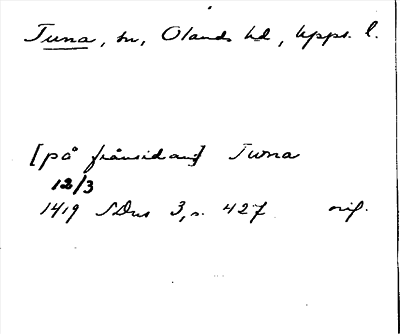 Tuna, sn, Olands hd, Upps. l.
[på frånsidan] Twna
12/3
1419 SDns 3, s. 427 orig.